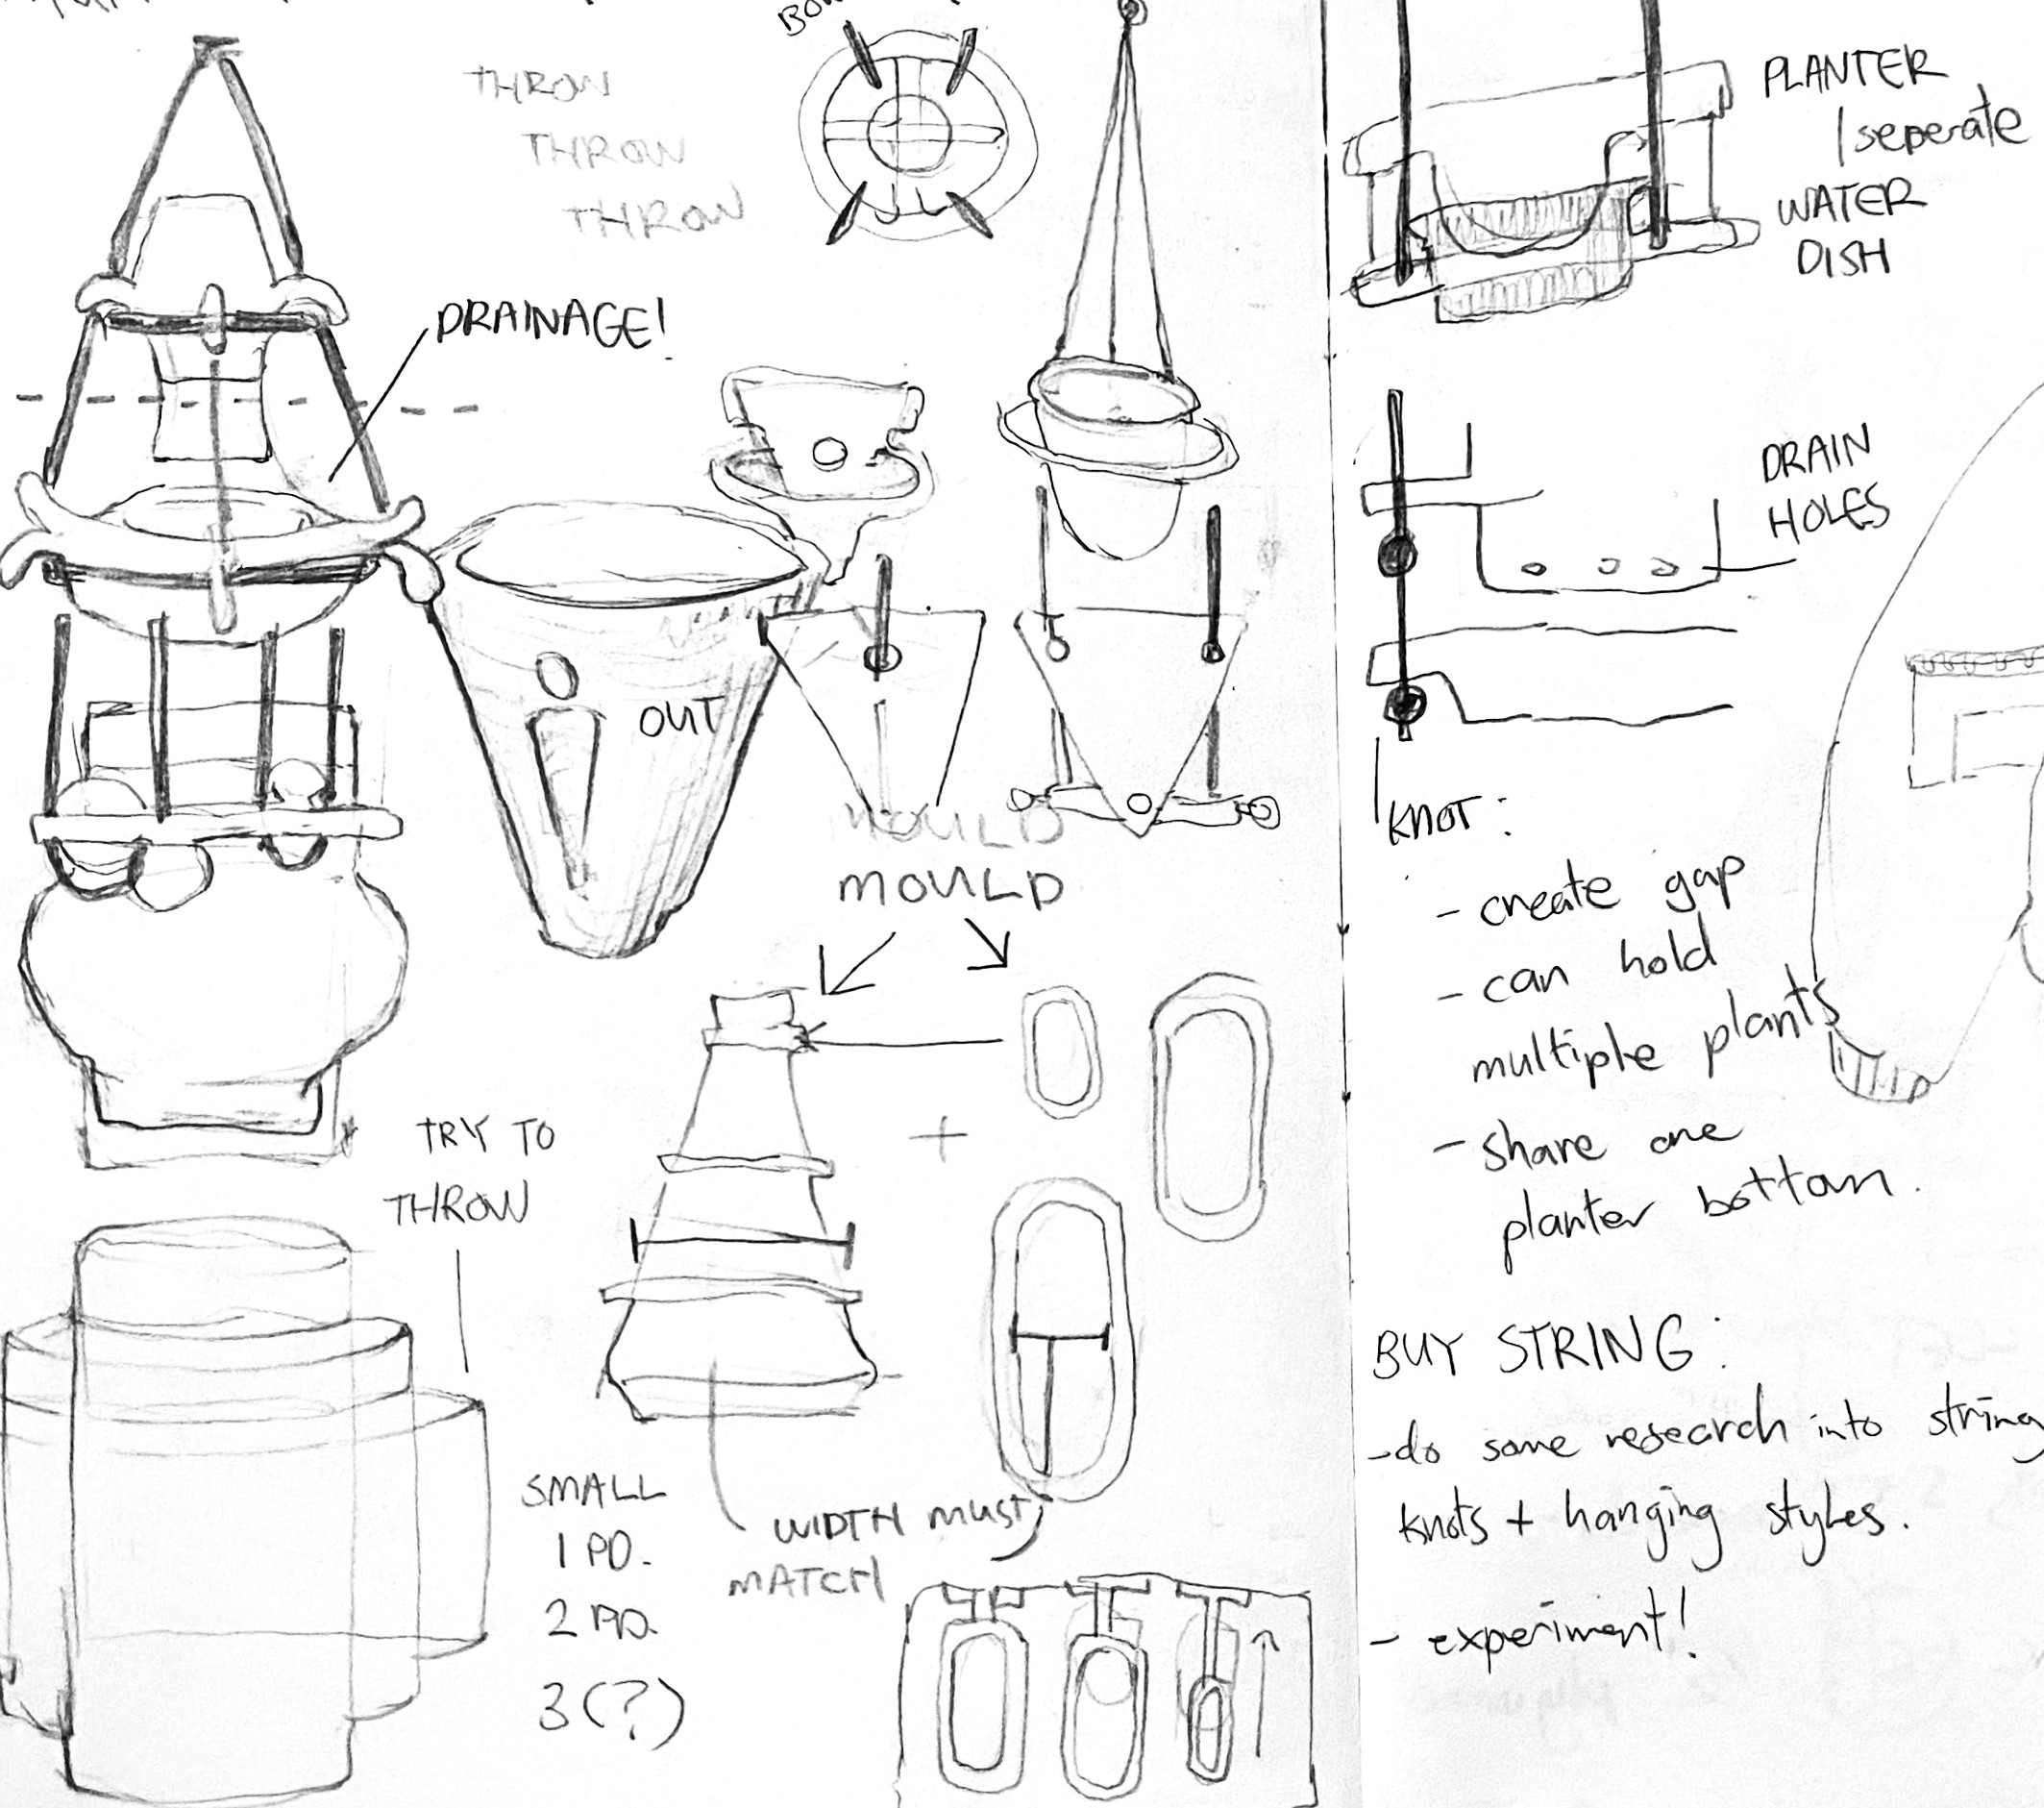 THROW
THROW
THROW
DRAINAGE!
OUT
MOULD
MOULD
TRY TO
THROW
SMALL
1 PD.
2 PD.
3 (?)
WIDTH MUST
MATCH
PLANTER
/seperate
WATER
DISH
DRAIN
HOLES
KNOT:
- create gap
- can hold
multiple plants
- share one
planter bottom.
BUY STRING:
- do some research into string
knots + hanging styles.
- experiment!